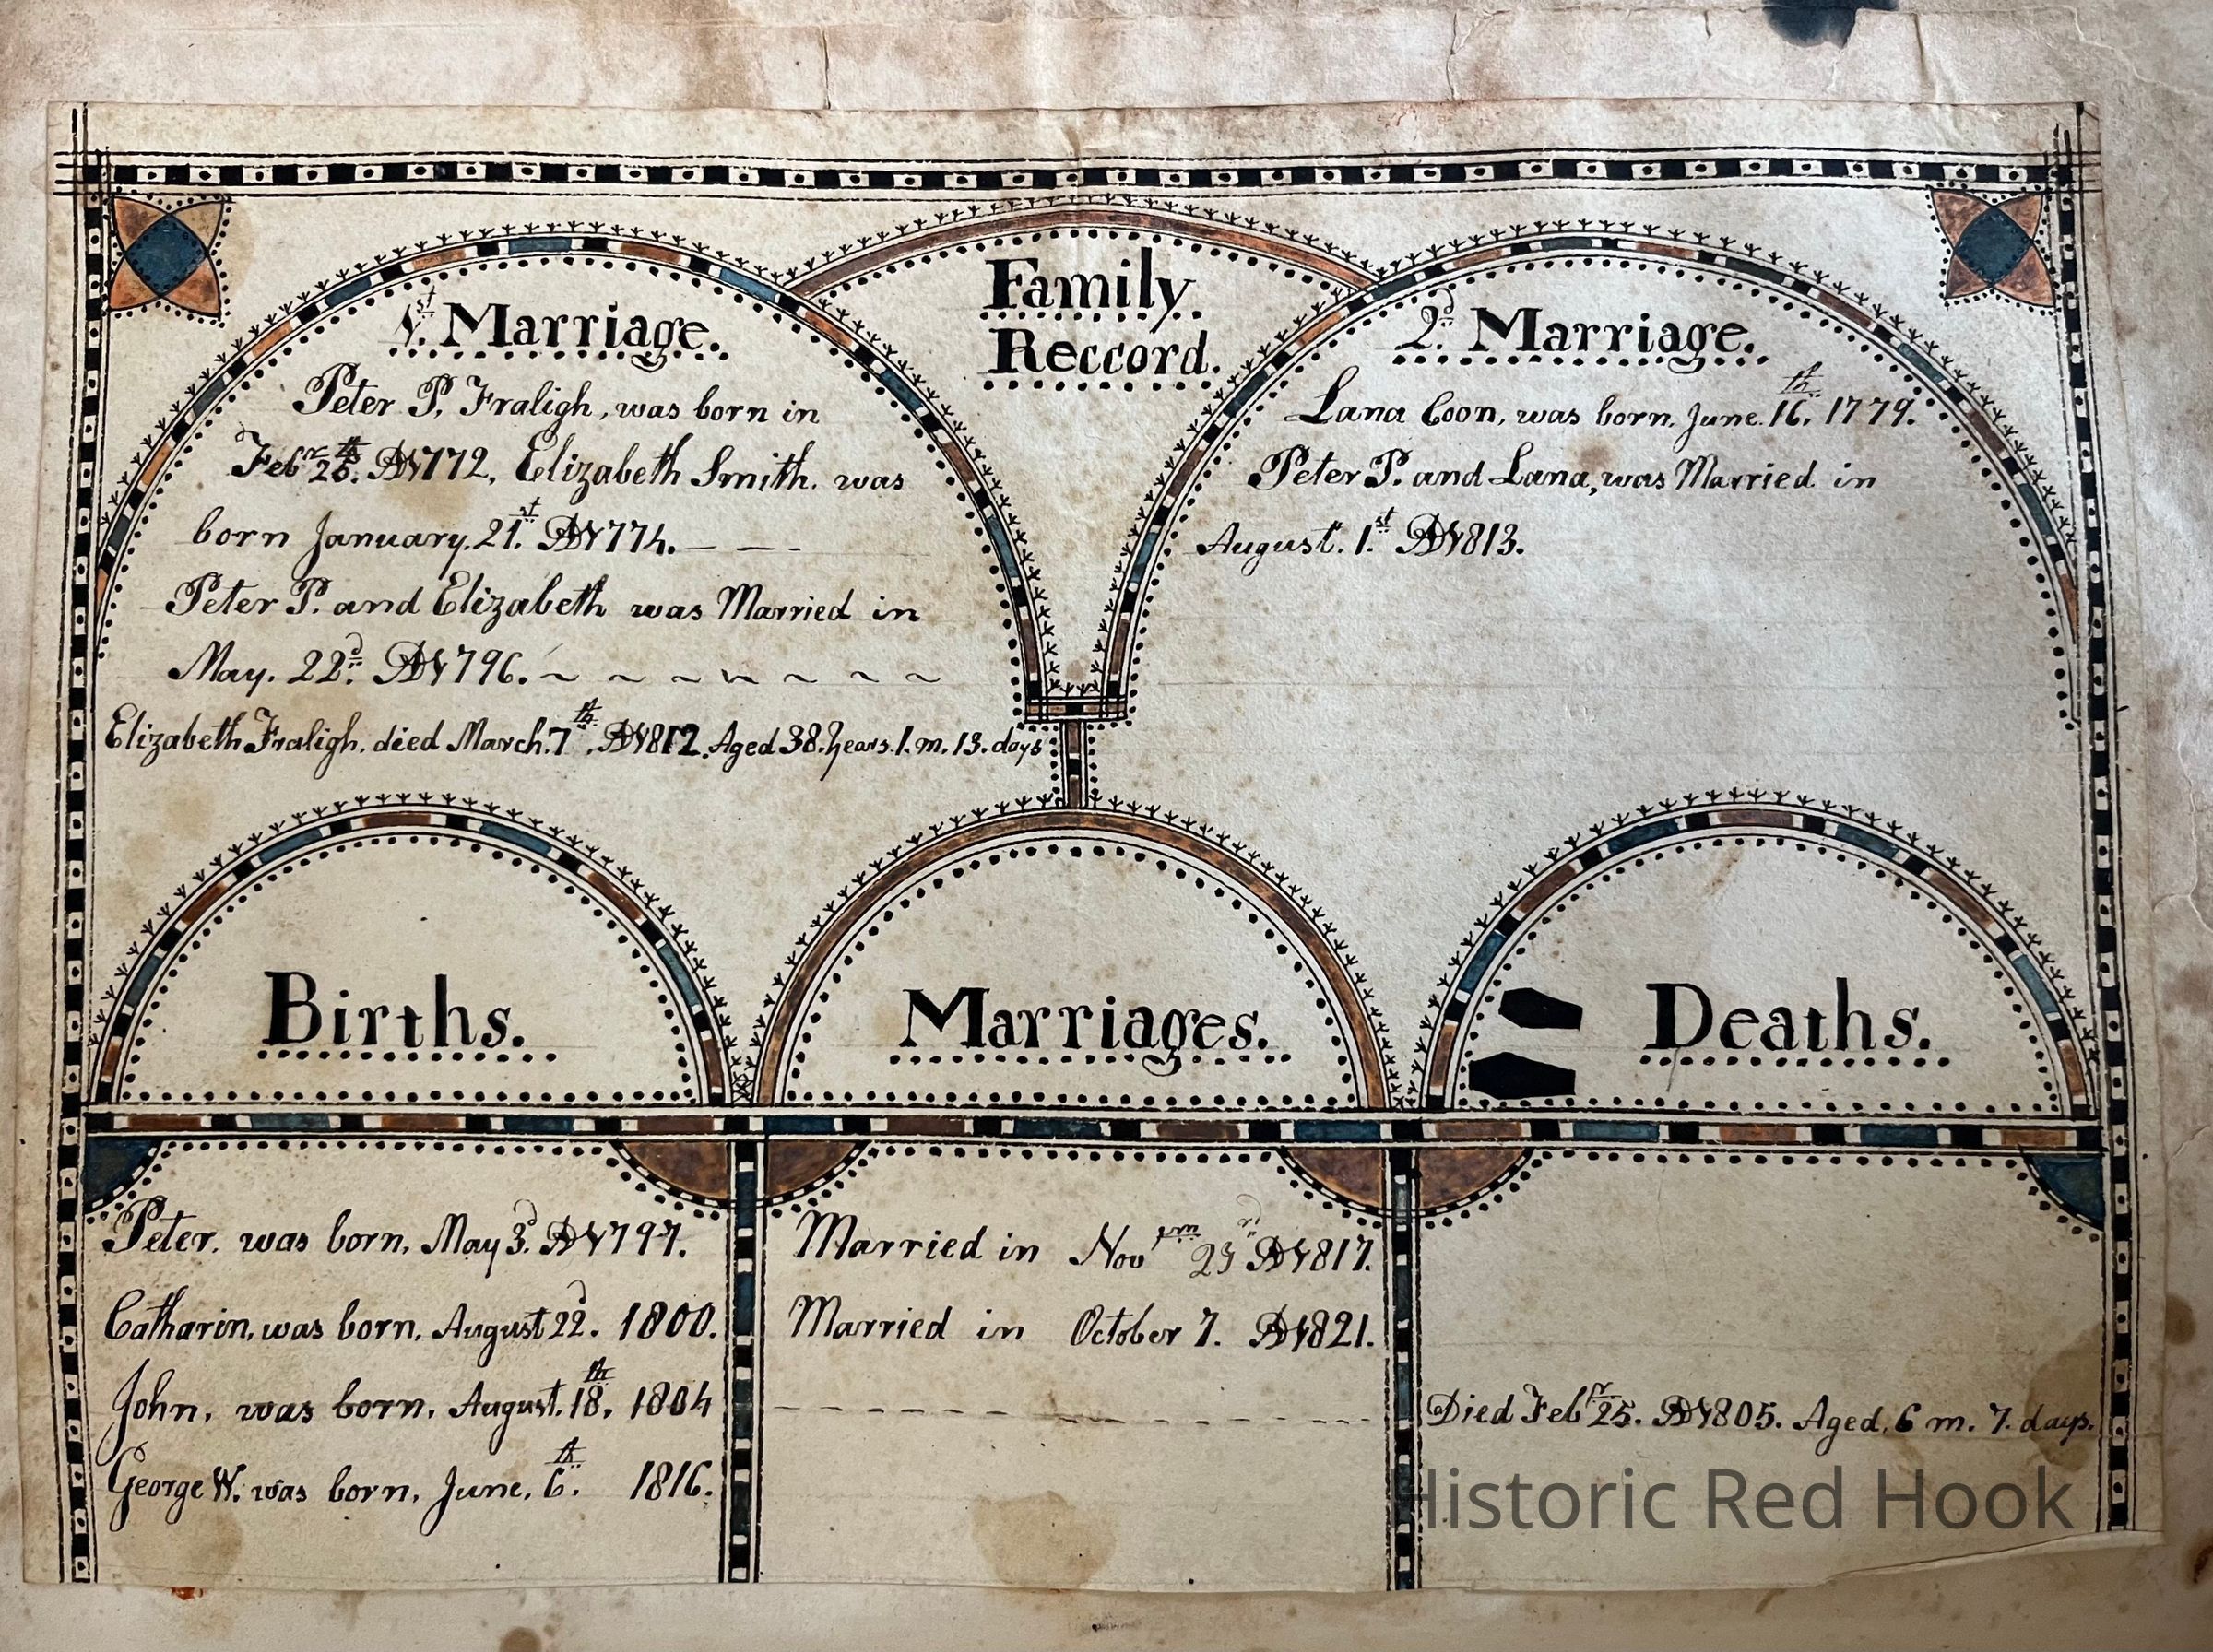 Family
Reccord.
1st Marriage.
Peter P. Fraligh, was born in
Febr 25th. AD 1772, Elizabeth Smith. was
born January. 21st. AD 1774. — — -
Peter P. and Elizabeth was Married in
May. 22d. AD 1796. ~ ~ ~ ~ ~ ~ ~
Elizabeth Fraligh, died March. 7th, AD 1812. Aged 38. years. 1. m. 13. days
2d. Marriage.
Lana Coon, was born, June. 16th. 1779.
Peter P. and Lana, was Married in
August. 1st AD 1813.
Births.
Peter. was born, May 3d. AD 1797.
Catharin, was born, August 22d. 1800.
John, was born, August. 18th, 1804
George W. was born, June, 6th. 1816.
Marriages.
Married in Nov 23d AD 1817.
Married in October 7. AD 1821.
Deaths.
Died Febr 25. AD 1805. Aged, 6 m. 7. days.
Historic Red Hook